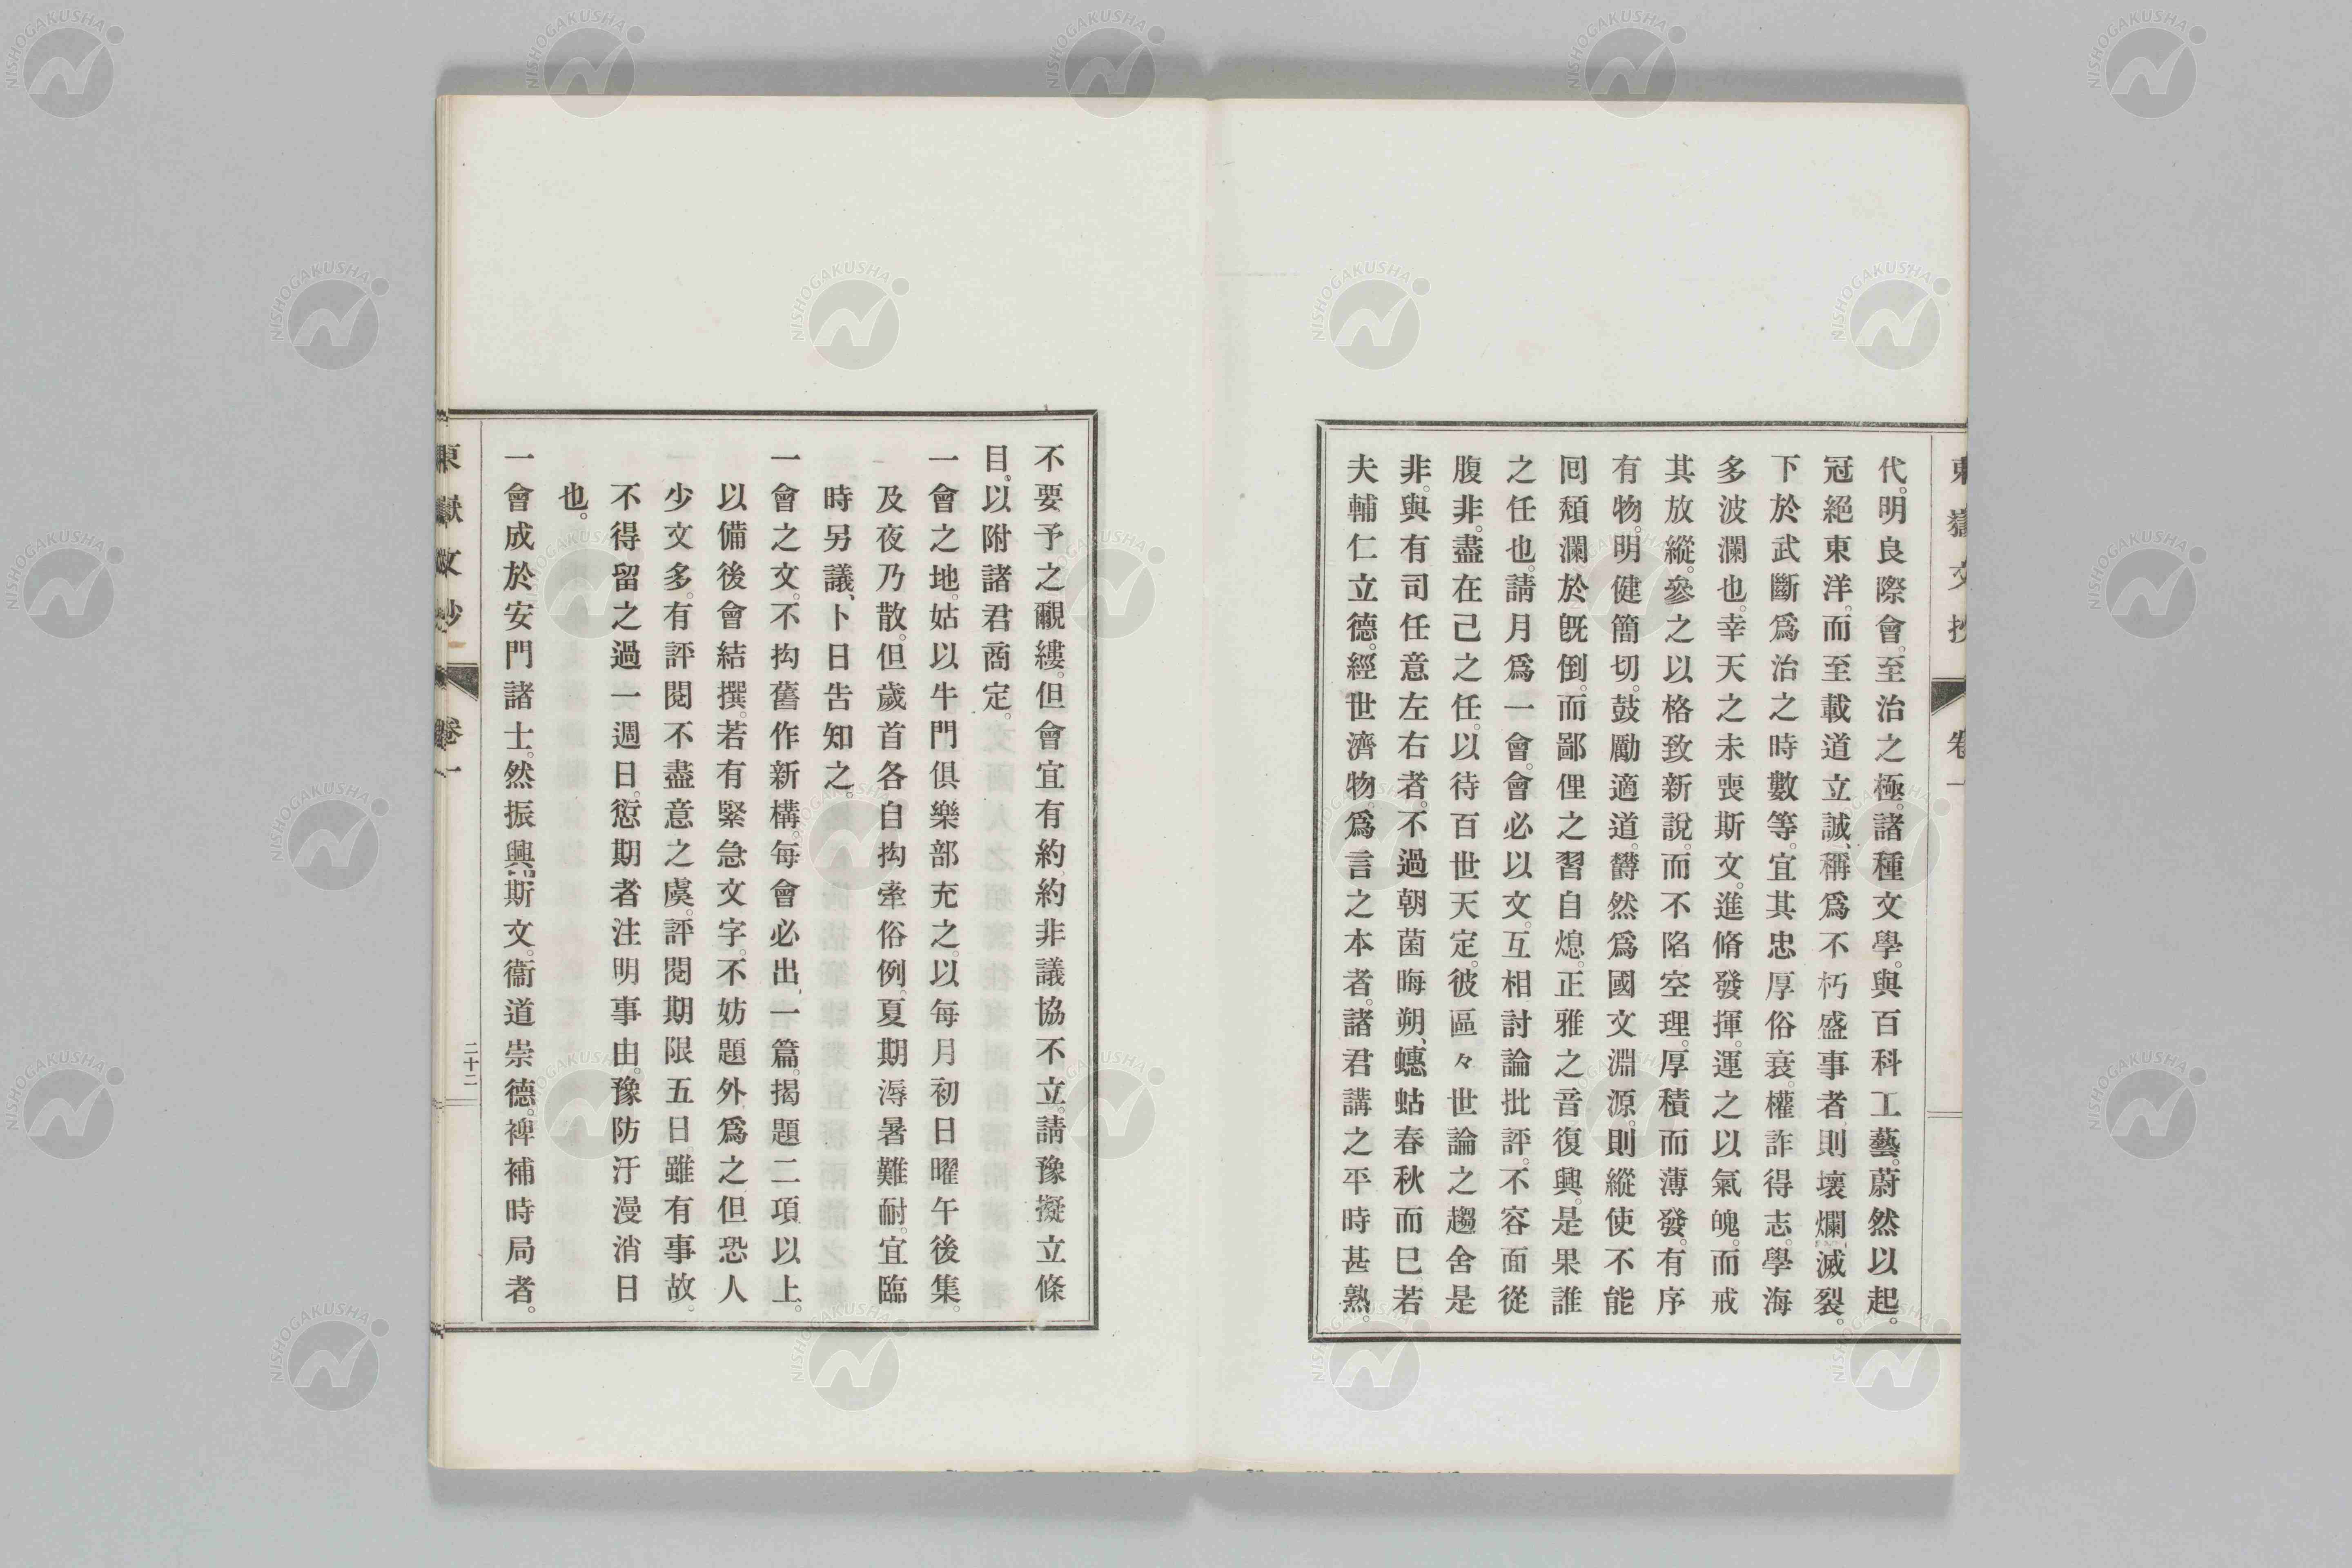 代。明良際會。至治之極。諸種文學。與百科工藝。蔚然以起。
冠絕東洋。而至載道立誠、稱爲不朽盛事者、則壞爛、滅裂。
下於武斷爲治之時數等。宜其忠厚俗衰。權詐得志。學海
多波瀾也。幸天之未喪斯文。進脩發揮。運之以氣魄。而戒
其放縱。參之以格致新說。而不陷空理。厚積而薄發。有序
有物。明健簡切。鼓勵適道。欝然爲國文淵源。則縱使不能
回頹瀾於既倒。而鄙俚之習自熄。正雅之音復興。是果誰
之任也。請月爲一會。會必以文。互相討論批評。不容面從
腹非。盡在己之任。以待百世天定。彼區々世論之趨舍是
非。與有司任意左右者。不過朝菌晦朔、蟪蛄春秋而已。若
夫輔仁立德。經世濟物。爲言之本者。諸君講之平時甚熟。
東嶽文抄 卷一
不要予之覼縷。但會宜有約、約非議協不立。請豫擬立條
目。以附諸君商定。
一會之地。姑以牛門俱樂部充之。以每月初日曜午後集。
及夜乃散。但歲首各自拘牽俗例。夏期溽暑難耐。宜臨
時另議、卜日告知之。
一會之文。不拘舊作新構。每會必出、一篇。揭題二項以上。
以備後會結撰。若有緊急文字。不妨題外爲之但恐人
少文多。有評閱不盡意之虞。評閱期限五日。雖有事故。
不得留之過一週日。愆期者注明事由。豫防汗漫消日
也。
一會成於安門諸士。然振興斯文。衞道崇德。裨補時局者。
東嶽文抄 卷一 二十二